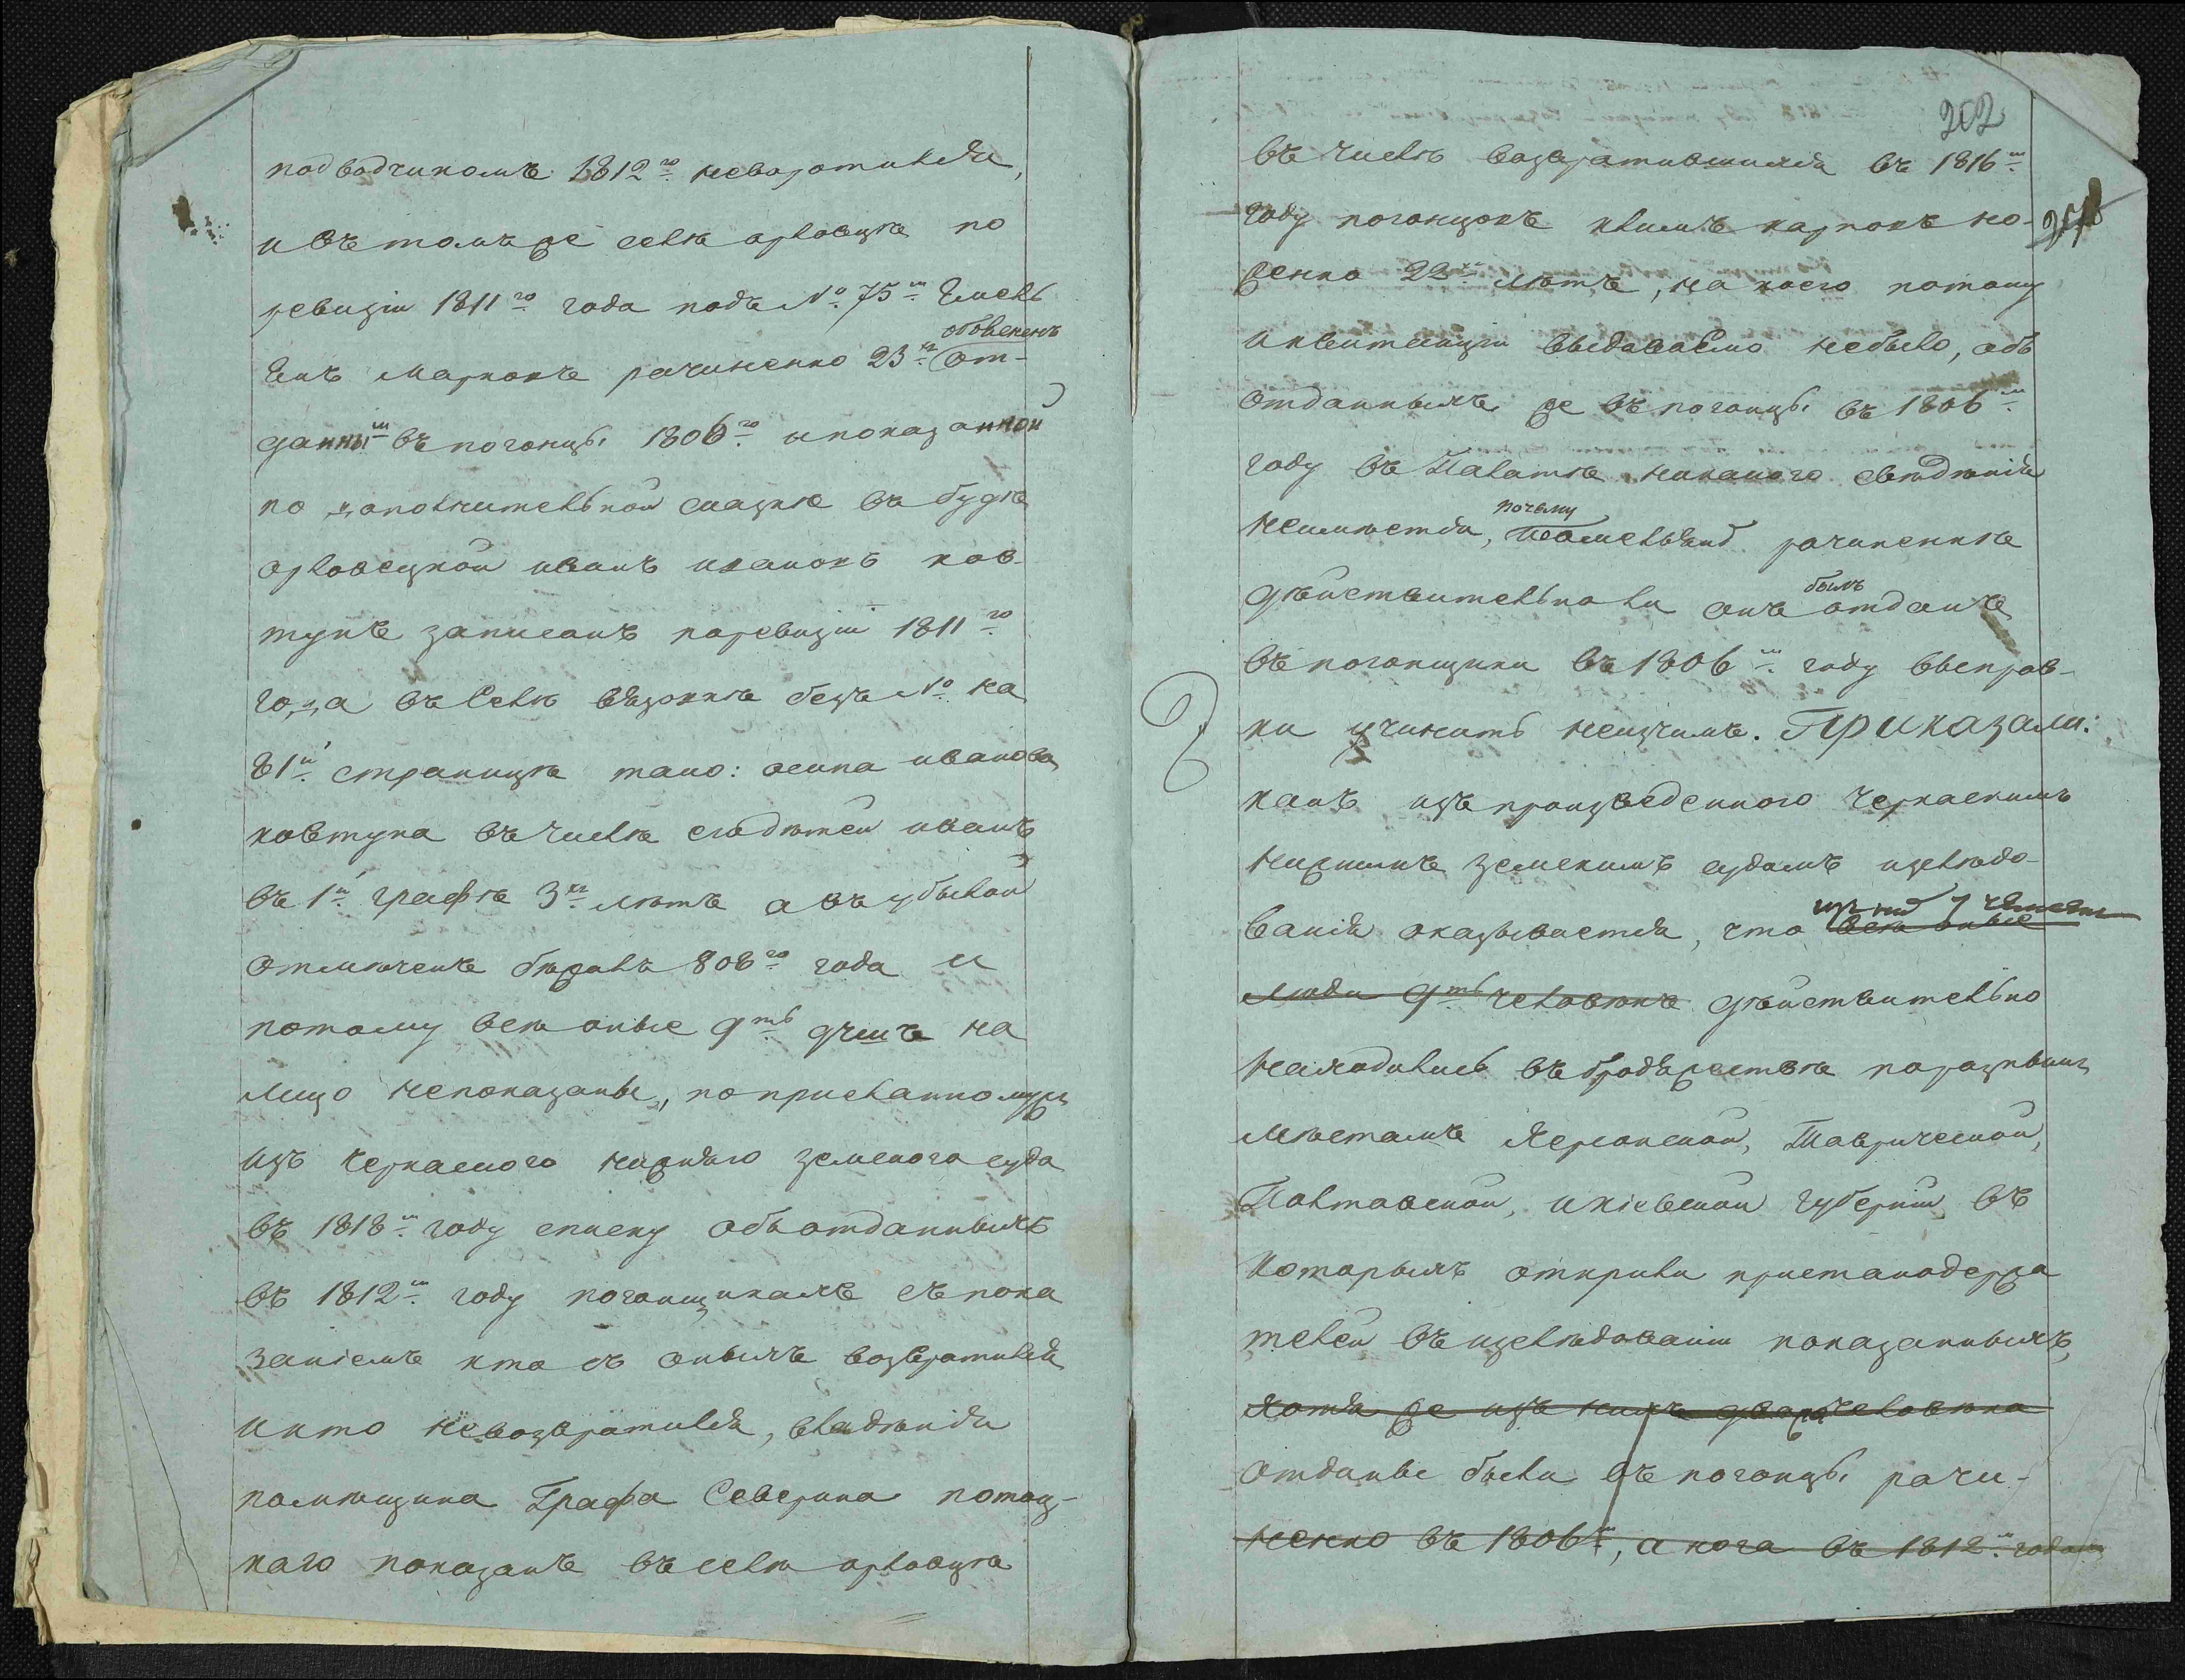 подводчикомъ 1812го невозратился,
и въ томъ же селѣ орловцѣ по
ревизіи 1811го года подъ №. 75м Емель
обовененъ
янъ марковъ рачиненко 23хъ от-
данный въ погонцы 1806го и показанной
по дополнительной сказкѣ въ будкѣ
орловецкой иванъ ивановъ ков-
тунъ записанъ по ревизіи 1811го
года въ Селѣ вязовкѣ безъ № на
й страницѣ тако: осипа иванова
ковтуна въ числѣ его дѣтей иванъ
въ 1й графѣ 3хъ лѣтъ а въ убылой
отмѣченъ бѣжалъ 808го года и
потому всѣ оные 9ть душъ на
лицо непоказаны, по присланномуже
изъ черкаского нижняго земского суда
въ 1818м году списку объ отданныхъ
въ 1812м году погонщикахъ съ пока
заніемъ кто съ оныхъ возвратился
и кто невозвратился, владѣнія
помѣщика Графа Северина потоц-
каго показанъ въ селѣ орловцѣ
202
въ числѣ возвратившихся въ 1816м
году погонцовъ климъ карповъ но-
женко 22хъ лѣтъ, на коего потому
и квитанціи выдаваемо небыло, объ
отданныхъ же въ погонцы въ 1806м
году въ Палатѣ никакого свѣдѣнія
почему
неимѣется, Емельянѣ рачиненкѣ
былъ
дѣйствительноли онъ отданъ
въ погонщики въ 1806м году выправ-
ки учинить неизчимъ. Приказали:
какъ изъ произведенного Черкаскимъ
нижнимъ земскимъ судомъ изслѣдо-
изъ нихъ 7 человекъ
ванія оказывается, что всѣ оные
люди 9ть человѣкъ дѣйствительно
находились въ бродяжествѣ по разнымъ
мѣстамъ Херсонской, Таврической,
Полтавской, и кіевской губерніи въ
которыхъ открыли пристанодержа
телей въ изслѣдованіи показанныхъ,
хотя же изъ нихъ два человѣка
отданы были въ погонцы рачи-
ненко въ 1806м, а кога въ 1812м годахъ